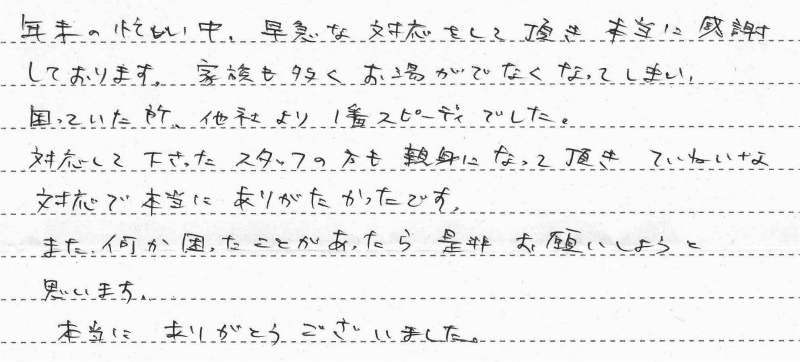 年末の忙しい中、早急な対応をして頂き本当に感謝
しております。家族も多くお湯がでなくなってしまい、
困っていた所、他社より1番スピーディでした。
対応して下さったスタッフの方も親身になって頂きていねいな
対応で本当にありがたかったです。
また、何か困ったことがあったら是非お願いしようと
思います。
本当にありがとうございました。